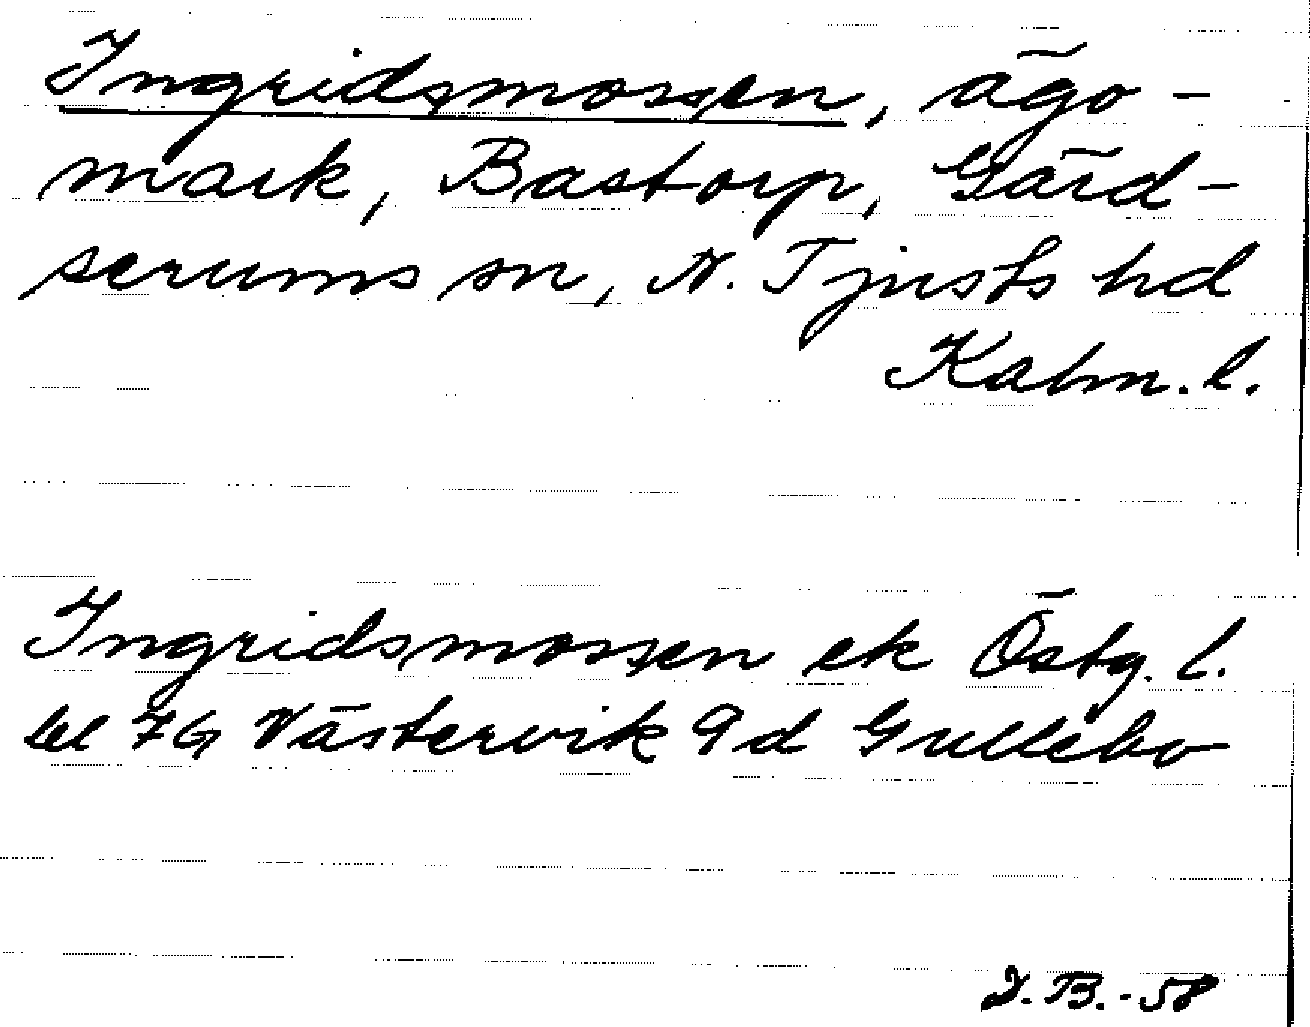 Ingridsmossen, ägo-
mark, Bastorp, Gärd-
serums sn, N. Tjusts hd
Kalm. l.
Ingridsmossen ek Östg. l.
bl 7G Västervik 9d Gullebo
I.B.-58